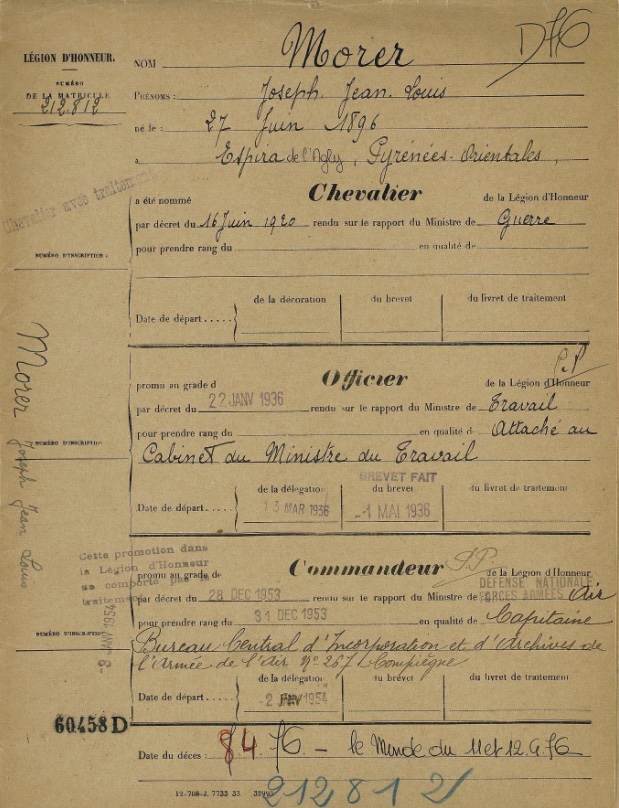 LÉGION D'HONNEUR.
NUMÉRO
DE LA MATRICULE
212.812
DHC
NOM Morer
PRÉNOMS : Joseph Jean Louis
né le : 27 Juin 1896
a Espira de l'Agly, Pyrénées-Orientales,
Chevalier avec traitement
a été nommé Chevalier de la Légion d'Honneur
par décret du 16 Juin 1920 rendu sur le rapport du Ministre de Guerre
pour prendre rang du en qualité de
NUMÉRO D'INSCRIPTION :
de la décoration du brevet du livret de traitement
Date de départ.....
Morer Joseph Jean Louis
P.P
promu au grade d Officier de la Légion d'Honneur
par décret du 22 JANV 1936 rendu sur le rapport du Ministre de Travail
pour prendre rang du en qualité de Attaché au
NUMÉRO D'INSCRIPTION
Cabinet du Ministre du Travail
BREVET FAIT
de la délégation du brevet du livret de traitement
Date de départ..... 13 MAR 1936 -1 MAI 1936
Cette promotion dans
la Légion d'Honneur
ne comporte pas de
traitement
promu au grade de Commandeur de la Légion d'Honneur
DEFENSE NATIONALE
FORCES ARMÉES
par décret du 28 DEC 1953 rendu sur le rapport du Ministre de Air
pour prendre rang du 31 DEC 1953 en qualité de Capitaine
NUMÉRO D'INSCRIPTION
Bureau Central d'Incorporation et d'Archives de
l'Armée de l'Air N° 267 Compiègne
de la délégation du brevet du livret de traitement
Date de départ..... -2 1954
60458 D
Date du déces : 84.76. - le Monde du 11 et 12.4.76
12-708-J. 7733 33
212812